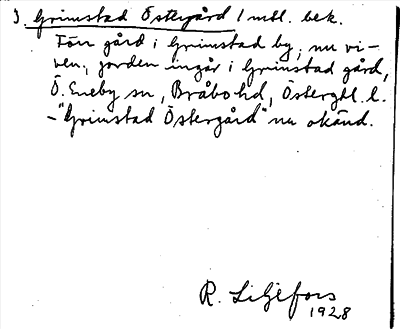 3. Grimstad Östergård 1 mtl. bek.
Förr gård i Grimstad by, nu ri-
ven, jorden ingår i Grimstad gård,
Ö. Eneby sn, Bråbo hd, Östergtl. l.
- "Grimstad Östergård" nu okänd.
R. Liljefors
1928